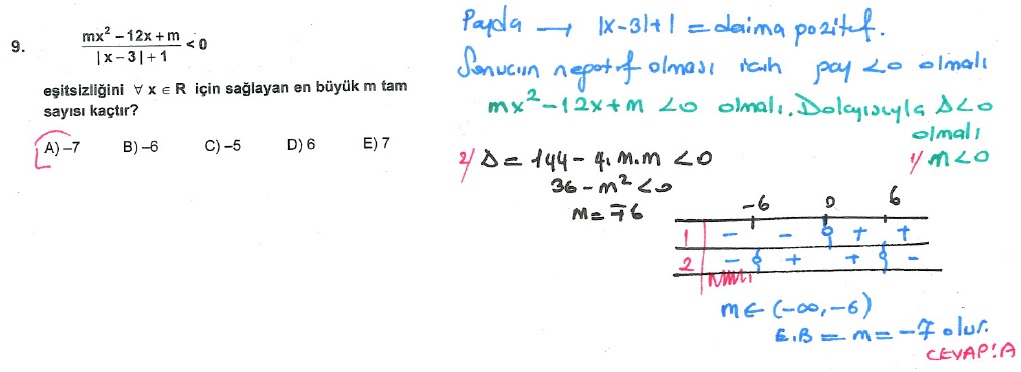 9. mx² – 12x + m / |x – 3| + 1 < 0
eşitsizliğini ∀ x ∈ R için sağlayan en büyük m tam
sayısı kaçtır?
A) –7 B) –6 C) –5 D) 6 E) 7
Payda → |x-3|+1 = daima pozitif.
Sonucun negatif olması için pay <0 olmalı
mx²-12x+m <0 olmalı. Dolayısıyla Δ<0
olmalı
1/ m<0
2/ Δ = 144 - 4.m.m <0
36 - m² <0
m = ∓6
-6 0 6
1 - - + +
2 - + + -
m ∈ (-∞, -6)
E.B = m = -7 olur.
CEVAP: A